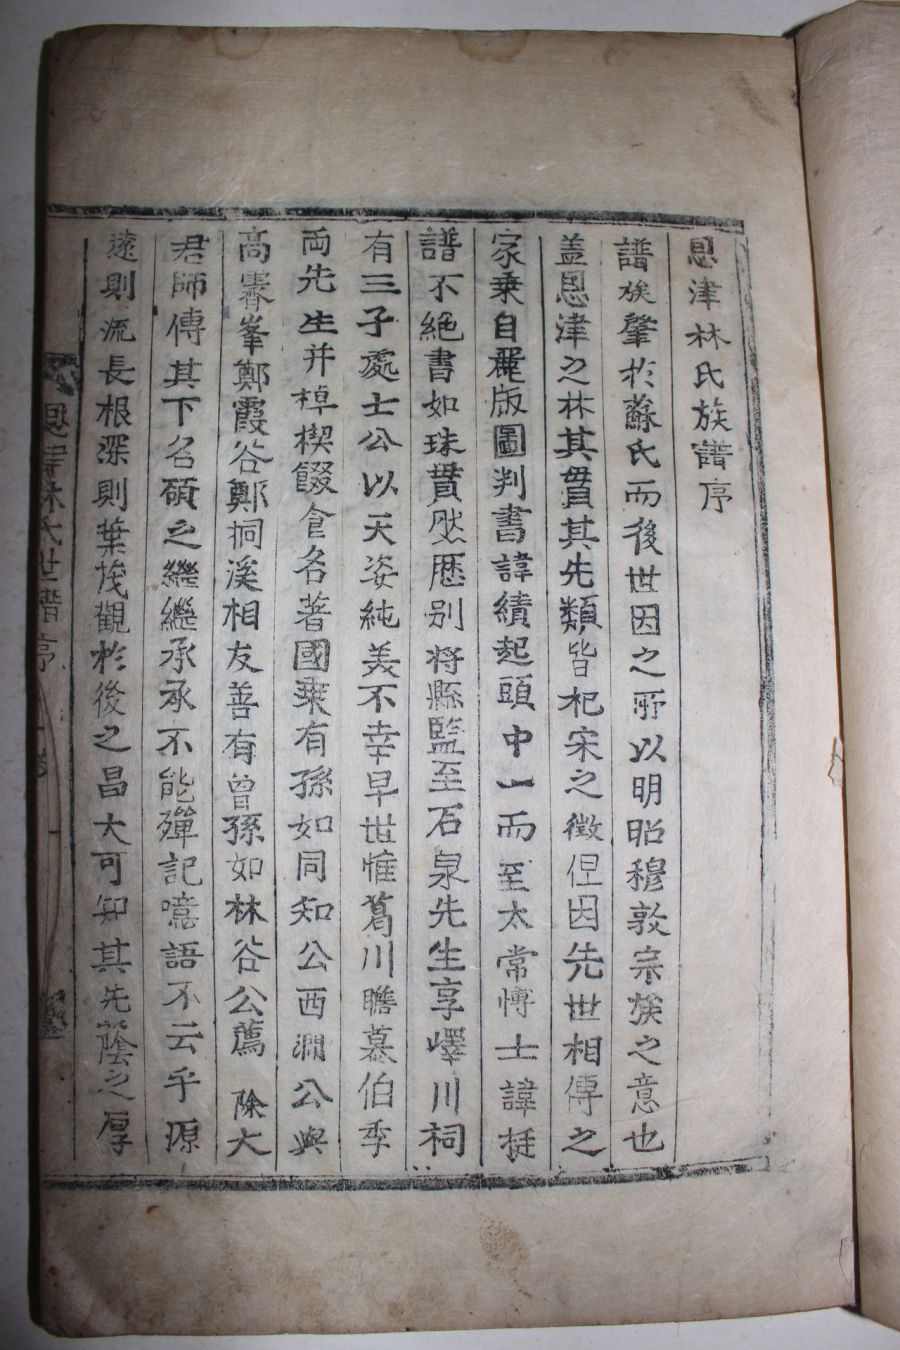 恩津林氏族譜序
譜族肇於蘇氏而後世因之所以明昭穆敦宗族之意也
盖恩津之林其貫其先類皆杞宋之徵但因先世相傳之
家乗自麗版圖判書諱績起頭中一而至太常博士諱挺
譜不絶書如珠貫然歴別将縣監至石泉先生享嶧川祠
有三子處士公以天姿純美不幸早世惟葛川瞻慕伯季
両先生并棹楔餟食名著國乗有孫如同知公西澗公與
高霽峯鄭霞谷鄭桐溪相友善有曾孫如林谷公薦 除大
君師傅其下名碩之繼繼承承不能殫記噫語不云乎源
遠則流長根深則葉茂觀於後之昌大可知其先蔭之厚
恩津林氏世譜序